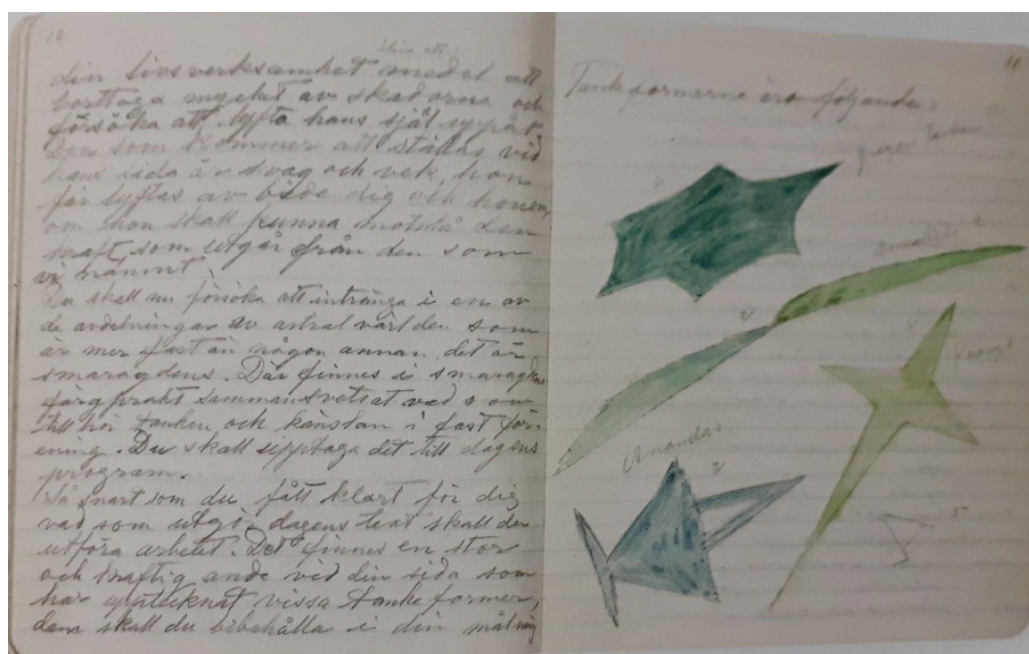 10
bliva ett
din livsverksamhet medel att
borttaga mycket av skadorna och
försöka att lyfta hans själ uppåt
Den som kommer att ställas vid
hans sida är svag och vek, hon
får lyftas av både dig och honom,
om hon skall kunna motstå den
kraft, som utgår från den som
vi nämnt.
Du skall nu försöka att intränga i en av
de avdelningar av astralvärlden som
är mer fast än någon annan, det är
smaragdens. Där finnes i smaragdens
färgprakt sammansvetsat vad som
tillhör tanken och känslan i fast för-
ening. Du skall upptaga det till dagens
program.
Så snart som du fått klart för dig
vad som utgör dagens text skall du
utföra arbetet. Det finnes en stor
och kraftig ande vid din sida som
har upptecknat vissa tankeformer,
dem skall du bibehålla i din målning
11
Tankformerna äro följande:
1/
2/
4/
Georg
Anandas
3/
5